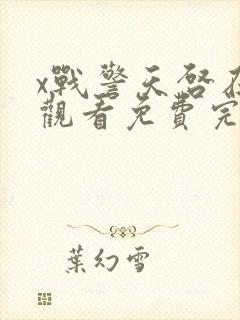 x戰警天啓在
觀看免費完
葉幻雪